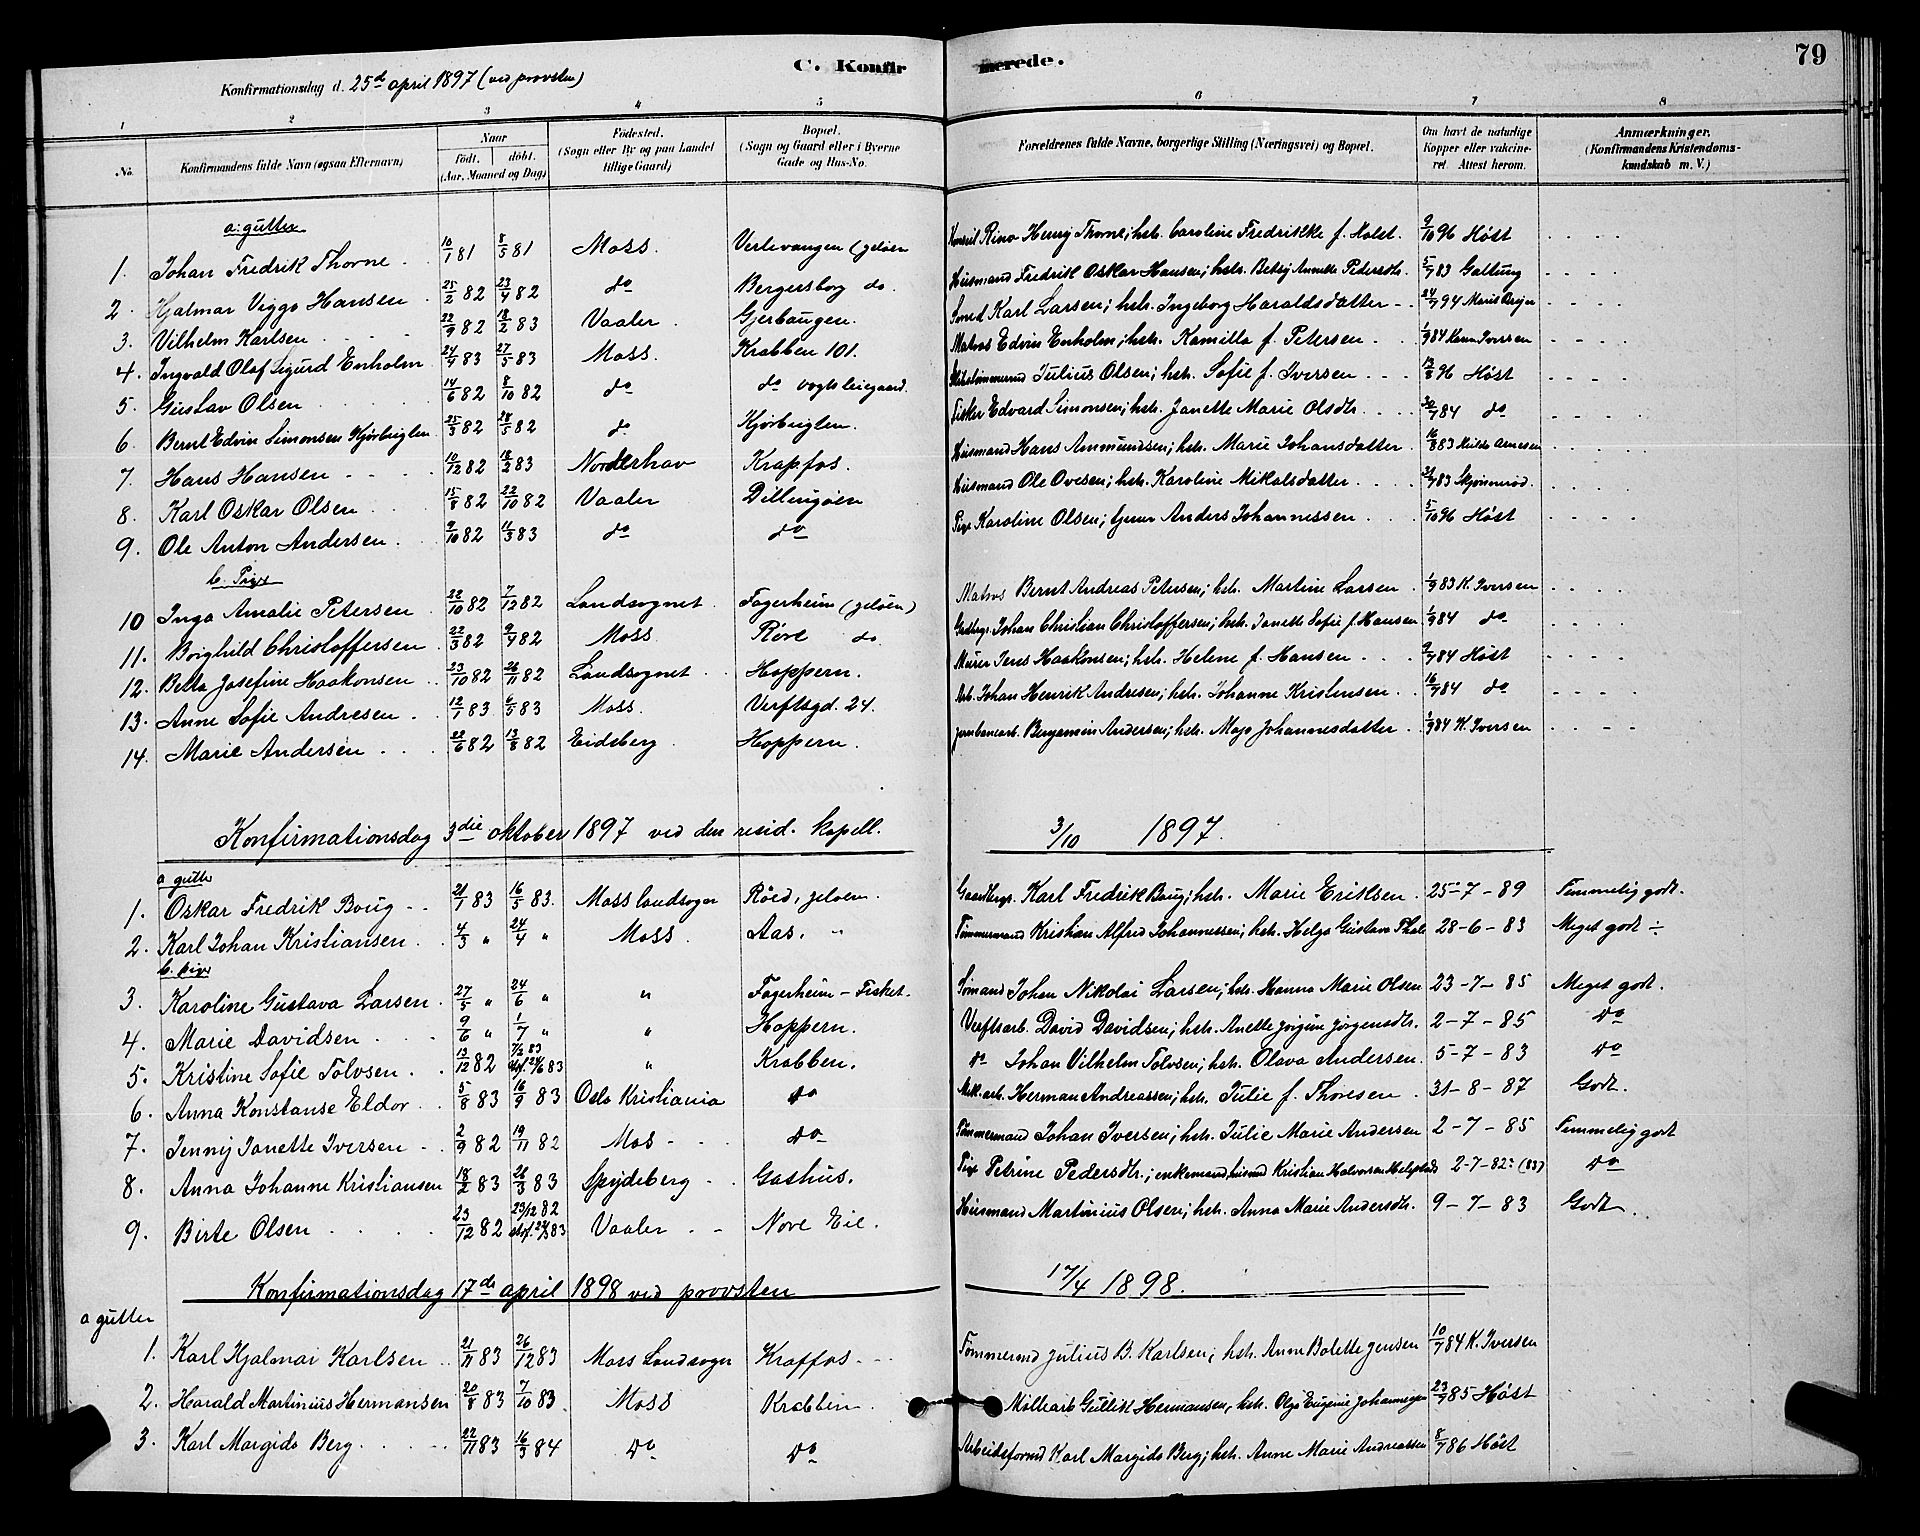 C. Konfirmerede.
79
Konfirmationsdag d. 25de april 1897 (ved provsten)
1 2 3 4 5 6 7 8
No. Konfirmandens fulde Navn (ogsaa Efternavn) Naar født. døbt. (Aar, Maaned og Dag) Fødested. (Sogn eller By og paa Landet tillige Gaard) Bopæl. (Sogn og Gaard eller i Byerne Gade og Hus-No. Forældrenes fulde Navne, borgerlige Stilling (Næringsvei) og Bopæl. Om havt de naturlige Kopper eller vakcineret. Attest herom. Anmærkninger. (Konfirmandens Kristendomskundskab m. V.)
a: gutter
1. Johan Fredrik Thorne 10/1 81 8/5 81 Moss. Verlevangen (Jeløen Konsul Rino Henry Thorne; hstr. Caroline Fredrikke f. Holst. 9/10 96 Høst
2. Hjalmar Viggo Hansen 25/2 82 23/4 82 do Bergersborg do. Husmand Fredrik Oskar Hansen; hstr. Betsy Annette Pedersdtr. 5/7 83 Galtung
3. Vilhelm Karlsen 22/9 82 18/2 83 Vaaler Gjerhaugen. Smed Karl Larsen; hstr. Ingeborg Haraldsdatter 24/7 94
4. Ingvald Olaf Sigurd Enholm 24/4 83 27/5 83 Moss. Krabben 101. Matros Edvin Enholm; hstr. Kamilla f. Petersen 1/9 84 Iversen
5. Gustav Olsen 14/6 82 8/10 82 do do vogtsleiegaard. Julius Olsen; hstr. Sofie f. Iversen 13/8 96 Høst
6. Bernt Edvin Simonsen Kjørbuglen 25/3 82 28/5 82 do Kjørbuglen. Fisker Edvard Simonsen; hstr. Janette Marie Olsdtr. 30/7 84 do
7. Hans Hansen 10/12 82 18/2 83 Norderhav Krapfos. Husmand Hans Ammundsen; hstr. Marie Johansdatter 16/8 83 Arnesen
8. Karl Oskar Olsen 15/8 82 22/10 82 Vaaler Dillingøen Husmand Ole Ovesen; hstr. Karoline Mikalsdatter 31/7 83 Skjønnerød.
9. Ole Anton Andersen 9/10 82 11/3 83 do do Pige Karoline Olsen; Anders Johannessen 5/10 96 Høst
b. Piger
10 Inga Amalie Petersen 22/10 82 7/12 82 Landsognet Fagerheim (Jeløen) Matros Bernt Andreas Petersen; hstr. Martine Larsen 1/9 83 K. Iversen
11. Borghild Christoffersen 22/3 82 9/4 82 Moss Røre do Johan Christian Christoffersen; hstr. Janette Sofie f. Hansen 1/9 84 do
12. Betta Josefine Haakonsen 23/10 82 26/11 82 Landsognet Hoppern. Murer Jens Haakonsen; hstr. Helene f. Hansen 9/7 84 Høst
13. Anne Sofie Andresen 12/1 83 6/5 83 Moss. Verftsgd. 24. Arb. Johan Henrik Andresen; hstr. Johanne Kristensen 16/7 84 do
14. Marie Andersen 22/6 82 13/8 82 Eidsberg Hoppern. jernbanearb. Benjamin Andersen; hstr. Maja Johannesdatter 1/9 84 K. Iversen
Konfirmationsdag 3die oktober 1897 ved den resid. kapell. 3/10 1897.
a gutter
1. Oskar Fredrik Boug 21/1 83 16/5 83. Moss landsogn Røed, jeløen. Gaardbrgr. Karl Fredrik Boug; hstr. Marie Eriksen 25-7-89 Temmelig godt.
2. Karl Johan Kristiansen 4/3 " 24/4 " Moss. Aas. " Tømmermand Kristian Alfred Johannessen; hstr. Helga Gustava 28-6-83 Meget godt ÷
b. piger
3. Karoline Gustava Larsen 27/5 " 24/6 " " Fagerheim - Fisket. Sømand Johan Nikolai Larsen; hstr. Hanna Marie Olsen 23-7-85 Meget godt.
4. Marie Davidsen 9/6 " 1/7 " " Hoppern. Verftsarb. David Davidsen; hstr. Anette Jørgine Jørgensdtr. 2-7-85 do
5. Kristine Sofie Tolvsen 13/12 82 7/2 83 stadf. 24/6 83 " Krabben. do Johan Vilhelm Tolvsen; hstr. Olava Andersen 5-7-83 do
6. Anna Konstanse Eldor 5/8 83 16/9 83 Oslo Kristiania do Mek.arb. Herman Andreassen; hstr. Julie f. Thoresen 31-8-87 Godt.
7. Jenny Janette Iversen 2/9 82 19/11 82 Mos do Tømmermand Johan Iversen; hstr. Julie Marie Andersen 2-7-85 Temmelig godt
8. Anna Johanne Kristiansen 18/2 83 26/3 83 Spydeberg Gashus. Pige Petrine Pedersdtr.; enkemand, husmd Kristian Halvorsen 2-7-82 (83) do
9. Birte Olsen 23/12 82 29/12 82 stadf. 24/3 83 Vaaler Nore Eie. Husmand Martinius Olsen; hstr. Anna Marie Andersdtr. 9-7-83 Godt.
Konfirmationsdag 17de april 1898 ved provsten 17/4 1898.
a gutter
1. Karl Hjalmar Karlsen 21/11 83 26/12 83 Moss Landsogn Kraffos Tømmermd Julius B. Karlsen; hstr. Anne Bolette Jensen 10/7 84 K. Iversen
2. Harald Martinius Hermansen 20/8 83 7/10 83 Moss Krabben Møllearb Gullik Hermansen, hstr. Olga Eugenie Johannesen 23/7 85 Høst
3. Karl Margido Berg 22/11 83 16/3 84 do do Arbeidsformd Karl Margido Berg; hstr. Anne Marie Andreassen 8/7 86 Høst